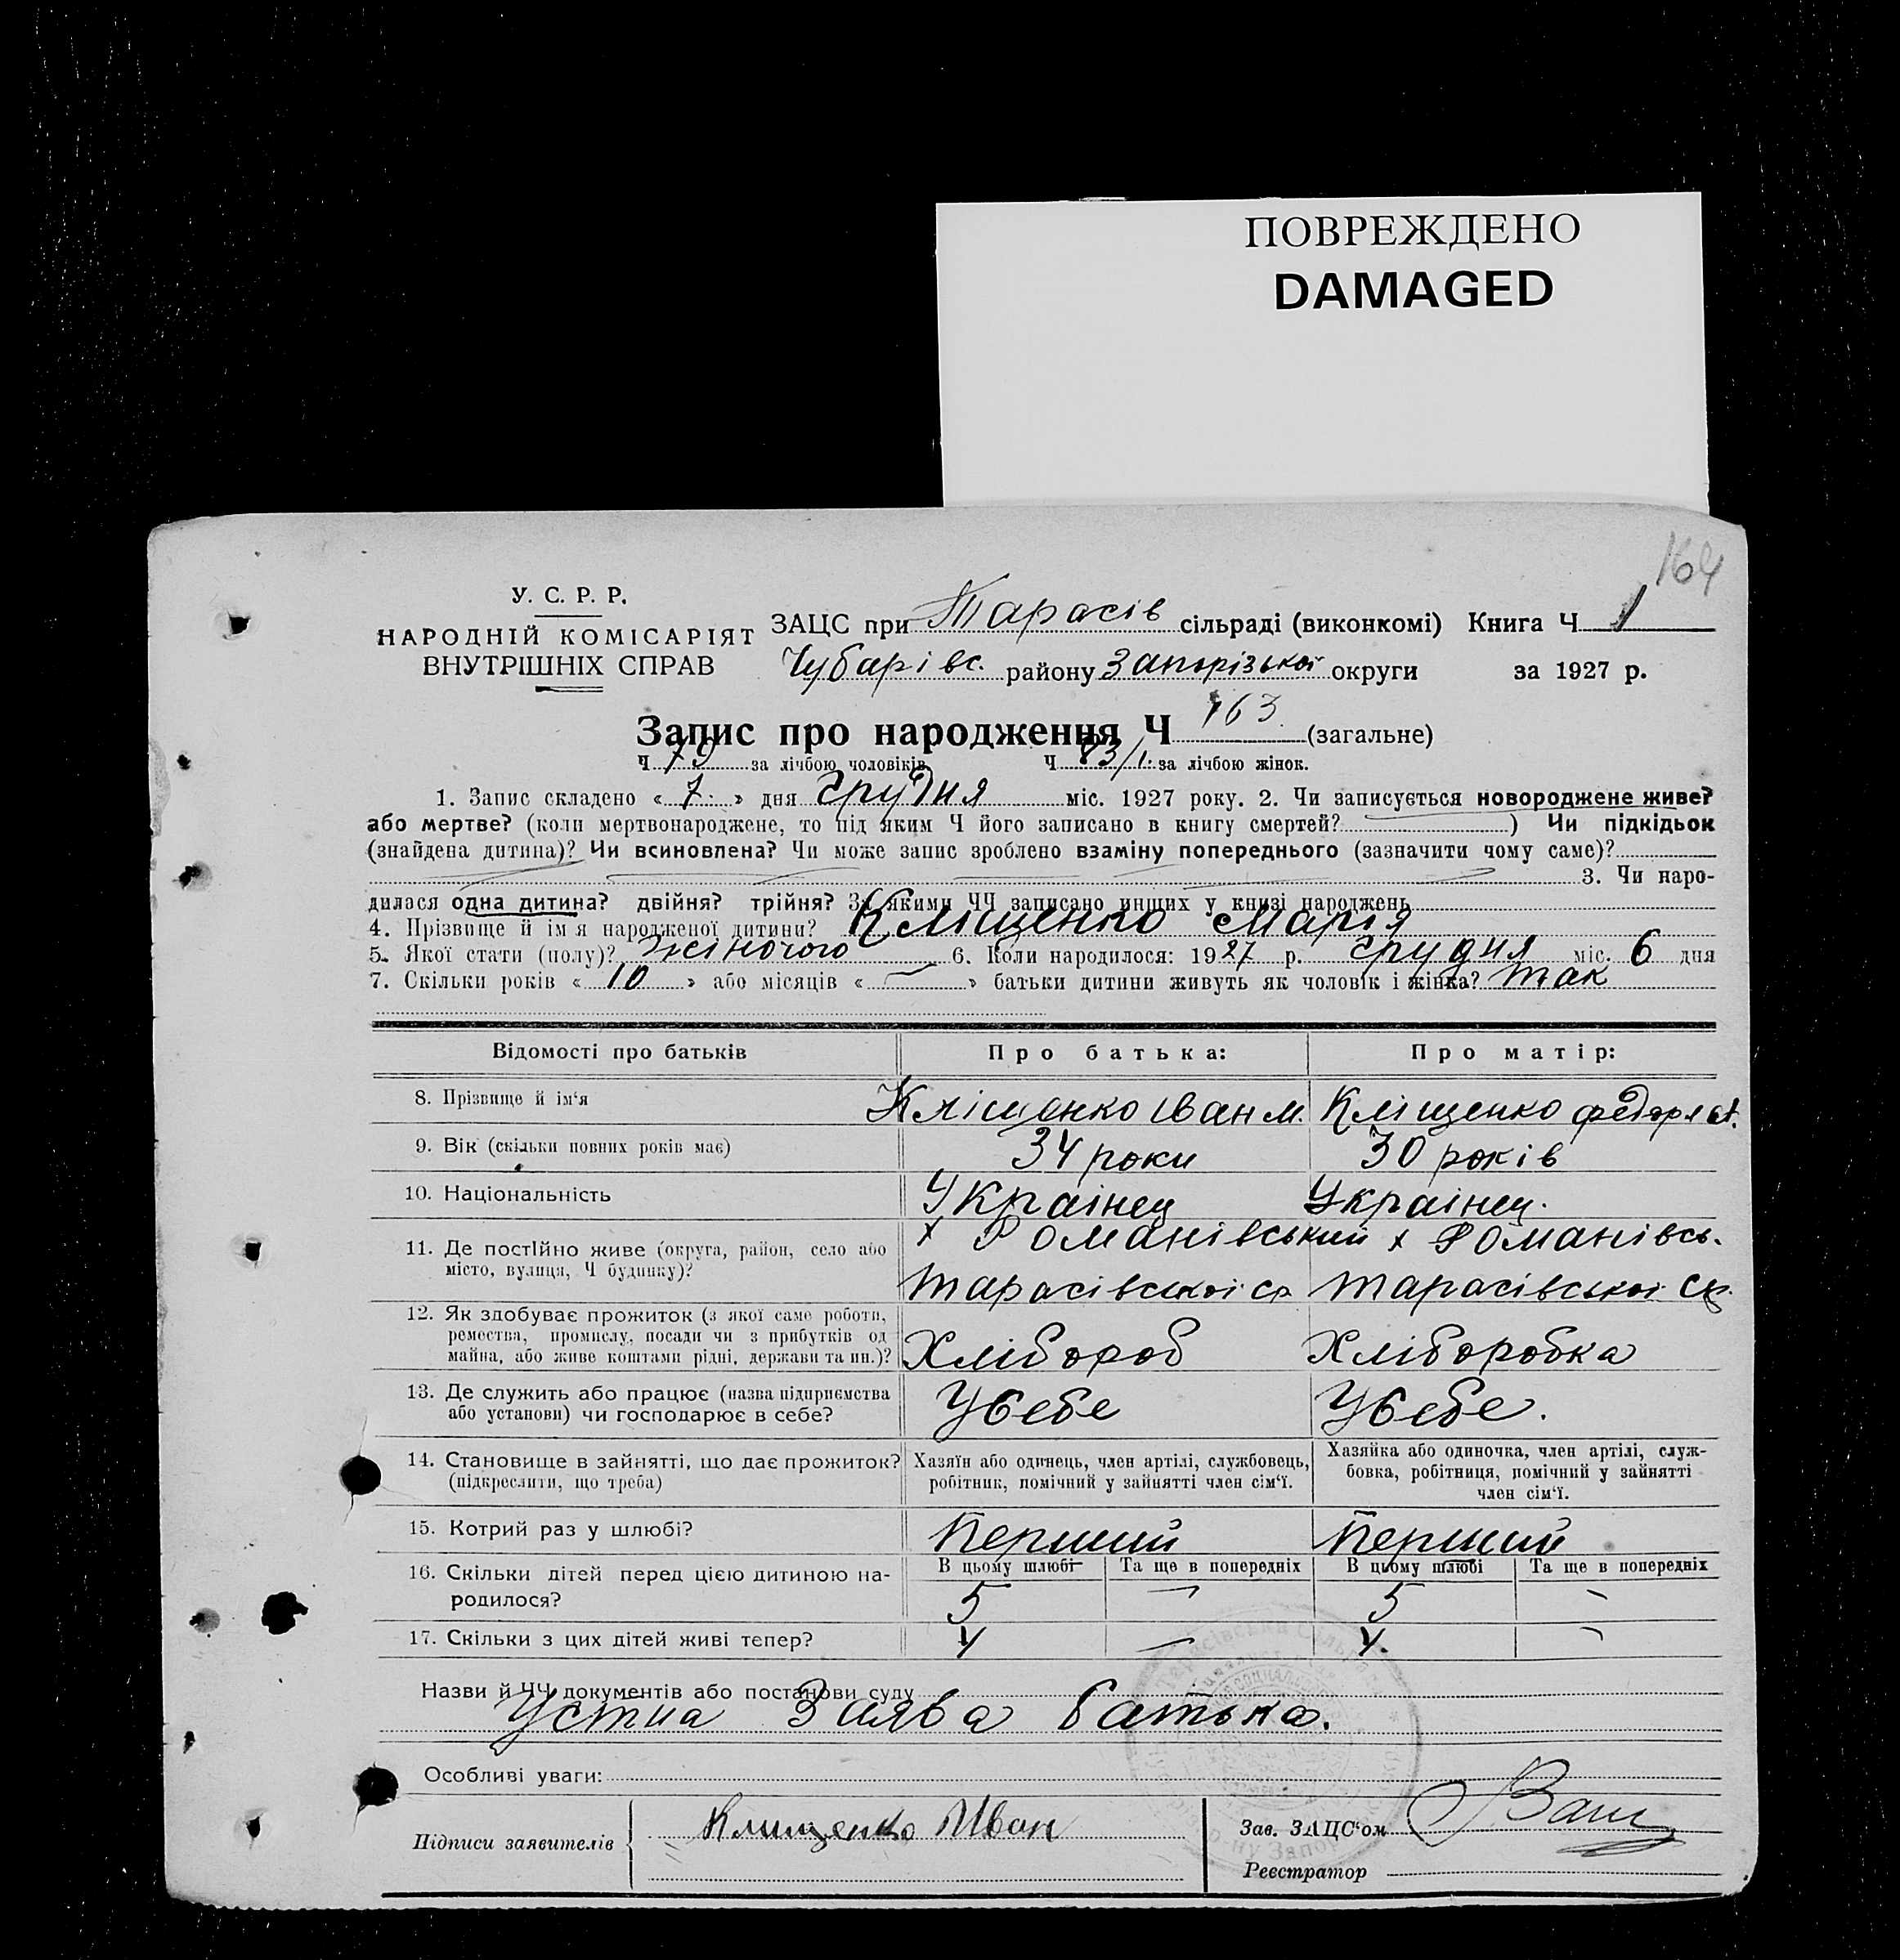 ПОВРЕЖДЕНО
DAMAGED
164
У. С. Р. Р.
НАРОДНІЙ КОМІСАРІЯТ
ВНУТРІШНІХ СПРАВ
ЗАЦС при Тарасів сільраді (виконкомі) Книга Ч 1
Чубарівс. району Запорізької округи за 1927 р.
Запис про народження Ч 163 (загальне)
Ч 79 за лічбою чоловіків Ч 83/1. за лічбою жінок.
1. Запис складено « 7 » дня Грудня міс. 1927 року. 2. Чи записується новороджене живе?
або мертве? (коли мертвонароджене, то під яким Ч його записано в книгу смертей? ) Чи підкідьок
(знайдена дитина)? Чи всиновлена? Чи може запис зроблено взаміну попереднього (зазначити чому саме)?
3. Чи наро-
дилася одна дитина? двійня? трійня? За якими ЧЧ записано инших у книзі народжень
4. Прізвище й ім'я народженої дитини? Кліщенко Марія
5. Якої стати (полу)? жіночого 6. Коли народилося: 1927 р. грудня міс. 6 дня
7. Скільки років « 10 » або місяців « — » батьки дитини живуть як чоловік і жінка? так
Відомості про батьків Про батька: Про матір:
8. Прізвище й ім'я Кліщенко Іван М. Кліщенко Федора
9. Вік (скільки повних років має) 34 роки 30 років
10. Національність Украінец Украінец.
11. Де постійно живе (округа, район, село або х Романівський х Романівсь.
місто, вулиця, Ч будинку)? Тарасівськоі ср Тарасівськоі ср.
12. Як здобуває прожиток (з якої саме роботи,
ремества, промислу, посади чи з прибутків од
майна, або живе коштами рідні, держави та ин.)? Хлібороб Хліборобка
13. Де служить або працює (назва підприємства
або установи) чи господарює в себе? У себе У себе.
14. Становище в зайнятті, що дає прожиток? Хазяїн або одинець, член артілі, службовець, Хазяйка або одиночка, член артілі, служ-
(підкреслити, що треба) робітник, помічний у зайнятті член сім'ї. бовка, робітниця, помічний у зайнятті
член сім'ї.
15. Котрий раз у шлюбі? Перший Перший
16. Скільки дітей перед цією дитиною на- В цьому шлюбі Та ще в попередніх В цьому шлюбі Та ще в попередніх
родилося? 5 — 5 -
17. Скільки з цих дітей живі тепер? 4 — 4. -
Назви й ЧЧ документів або постанови суду
Устна Заява батька.
Особливі уваги:
Підписи заявителів Клищенко Иван
Зав. ЗАЦС'ом
Реєстратор